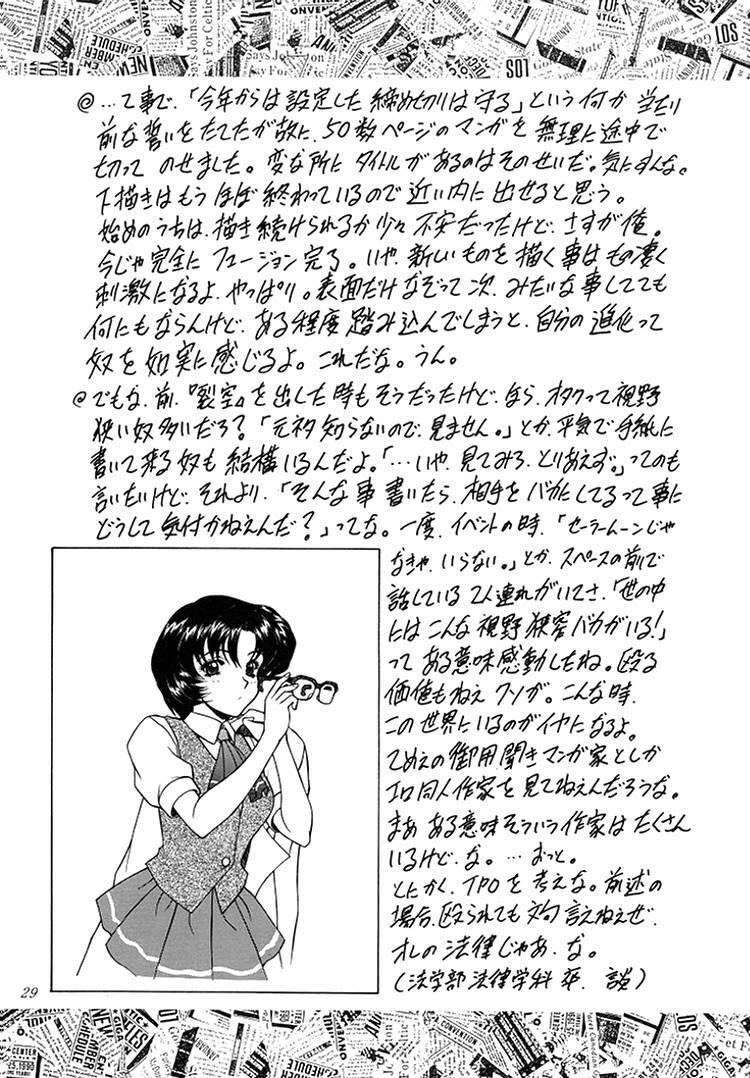 @…て事で、「今年からは設定した締め切りは守る」という何か当たり
前な誓いをたてたが故に、50数ページのマンガを無理に途中で
切ってのせました。変な所にタイトルがあるのはそのせいだ。気にすんな。
下描きはもうほぼ終わっているので近い内に出せると思う。
始めのうちは、描き続けられるか少々不安だったけど、さすが俺。
今じゃ完全にフュージョン完了。いや、新しいものを描く事はもの凄く
刺激になるよ、やっぱり。表面だけなぞって次、みたいな事してても
何にもならんけど、ある程度踏み込んでしまうと、自分の進化って
奴を如実に感じるよ。これだな。うん。
@でもな、前、『裂空』を出した時もそうだったけど、なら、オタクって視野
狭い奴多いだろ?「元ネタ知らないので、見ません。」とか、平気で手紙に
書いて来る奴も結構いるんだよ。「…いや、見てみろ、とりあえず。」ってのも
言いたいけど、それより、「そんな事書いたら、相手をバカにしてるって事に
どうして気付かねえんだ?」ってな。一度、イベントの時、「セーラームーンじゃ
なきゃ、いらない。」とか、スペースの前で
話している2人連れがいてさ、「世の中
にはこんな視野狭窄バカがいる!」
ってある意味感動したね。殴る
価値もねえクソが。こんな時、
この世界にいるのがイヤになるよ。
てめえの御用聞きマンガ家としか
エロ同人作家を見てねえんだろうな。
まあ ある意味そういう作家はたくさん
いるけど、な。…おっと。
とにかく、TPOを考えな。前述の
場合、殴られても文句言えねえぜ、
オレの法律じゃあ、な。
(法学部法律学科 卒、談)
29